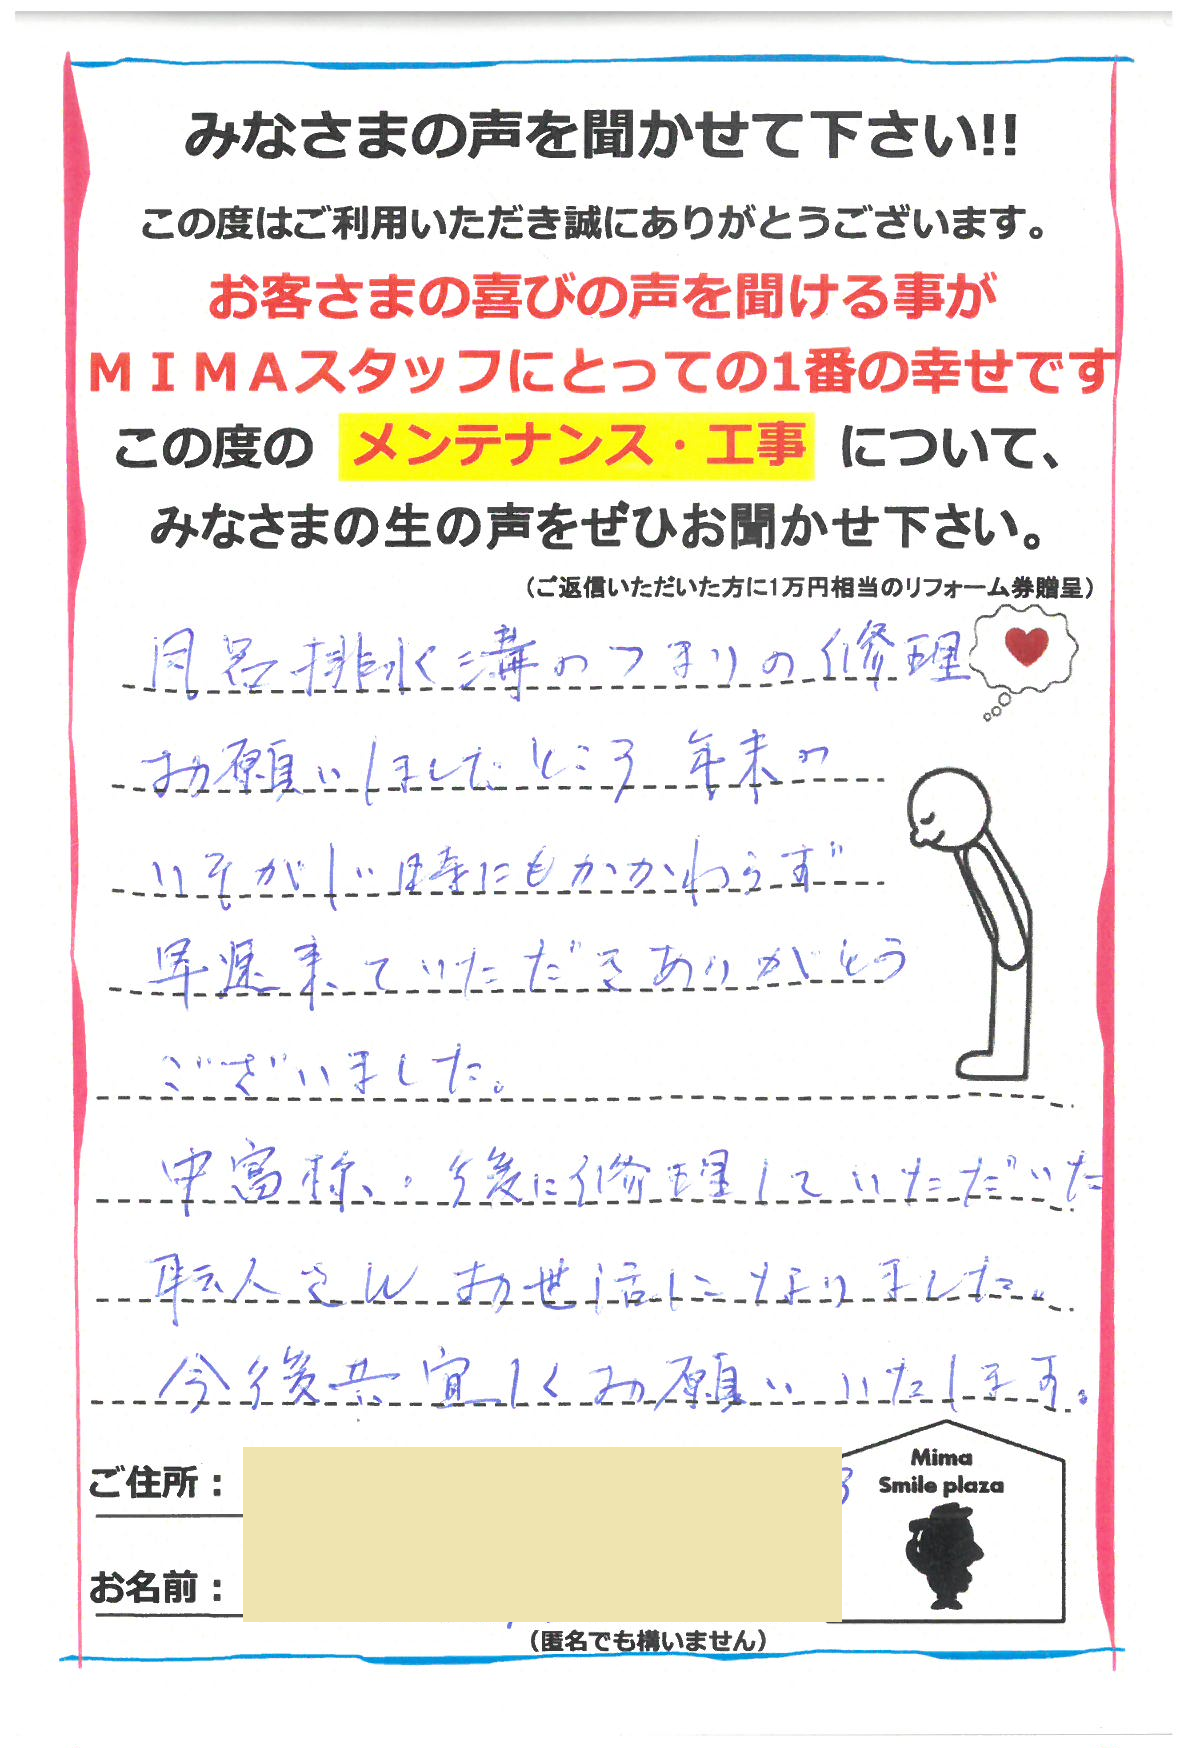 みなさまの声を聞かせて下さい!!
この度はご利用いただき誠にありがとうございます。
お客さまの喜びの声を聞ける事が
ＭＩＭＡスタッフにとっての1番の幸せです
この度の メンテナンス・工事 について、
みなさまの生の声をぜひお聞かせ下さい。
（ご返信いただいた方に1万円相当のリフォーム券贈呈）
風呂排水溝のつまりの修理
お願いしましたところ年末の
いそがしい時にもかかわらず
早速来ていただきありがとう
ございました。
中富様、後に修理していただいた
職人さんお世話になりました。
今後共宜しくお願いいたします。
ご住所：
3
Mima
Smile plaza
お名前：
（匿名でも構いません）